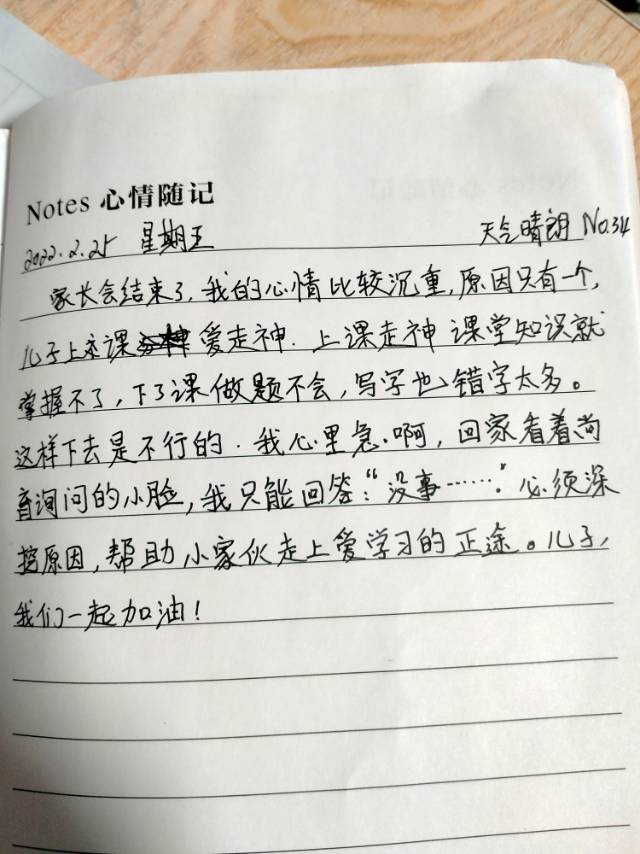 Notes 心情随记
2022.2.25 星期五 天气晴朗 No.34
家长会结束了,我的心情比较沉重,原因只有一个,
儿子上课爱走神.上课走神课堂知识就
掌握不了,下了课做题不会,写字也错字太多。
这样下去是不行的.我心里急啊,回家看着满
询问的小脸,我只能回答:“没事……”必须深
挖原因,帮助小家伙走上爱学习的正途。儿子,
我们一起加油!